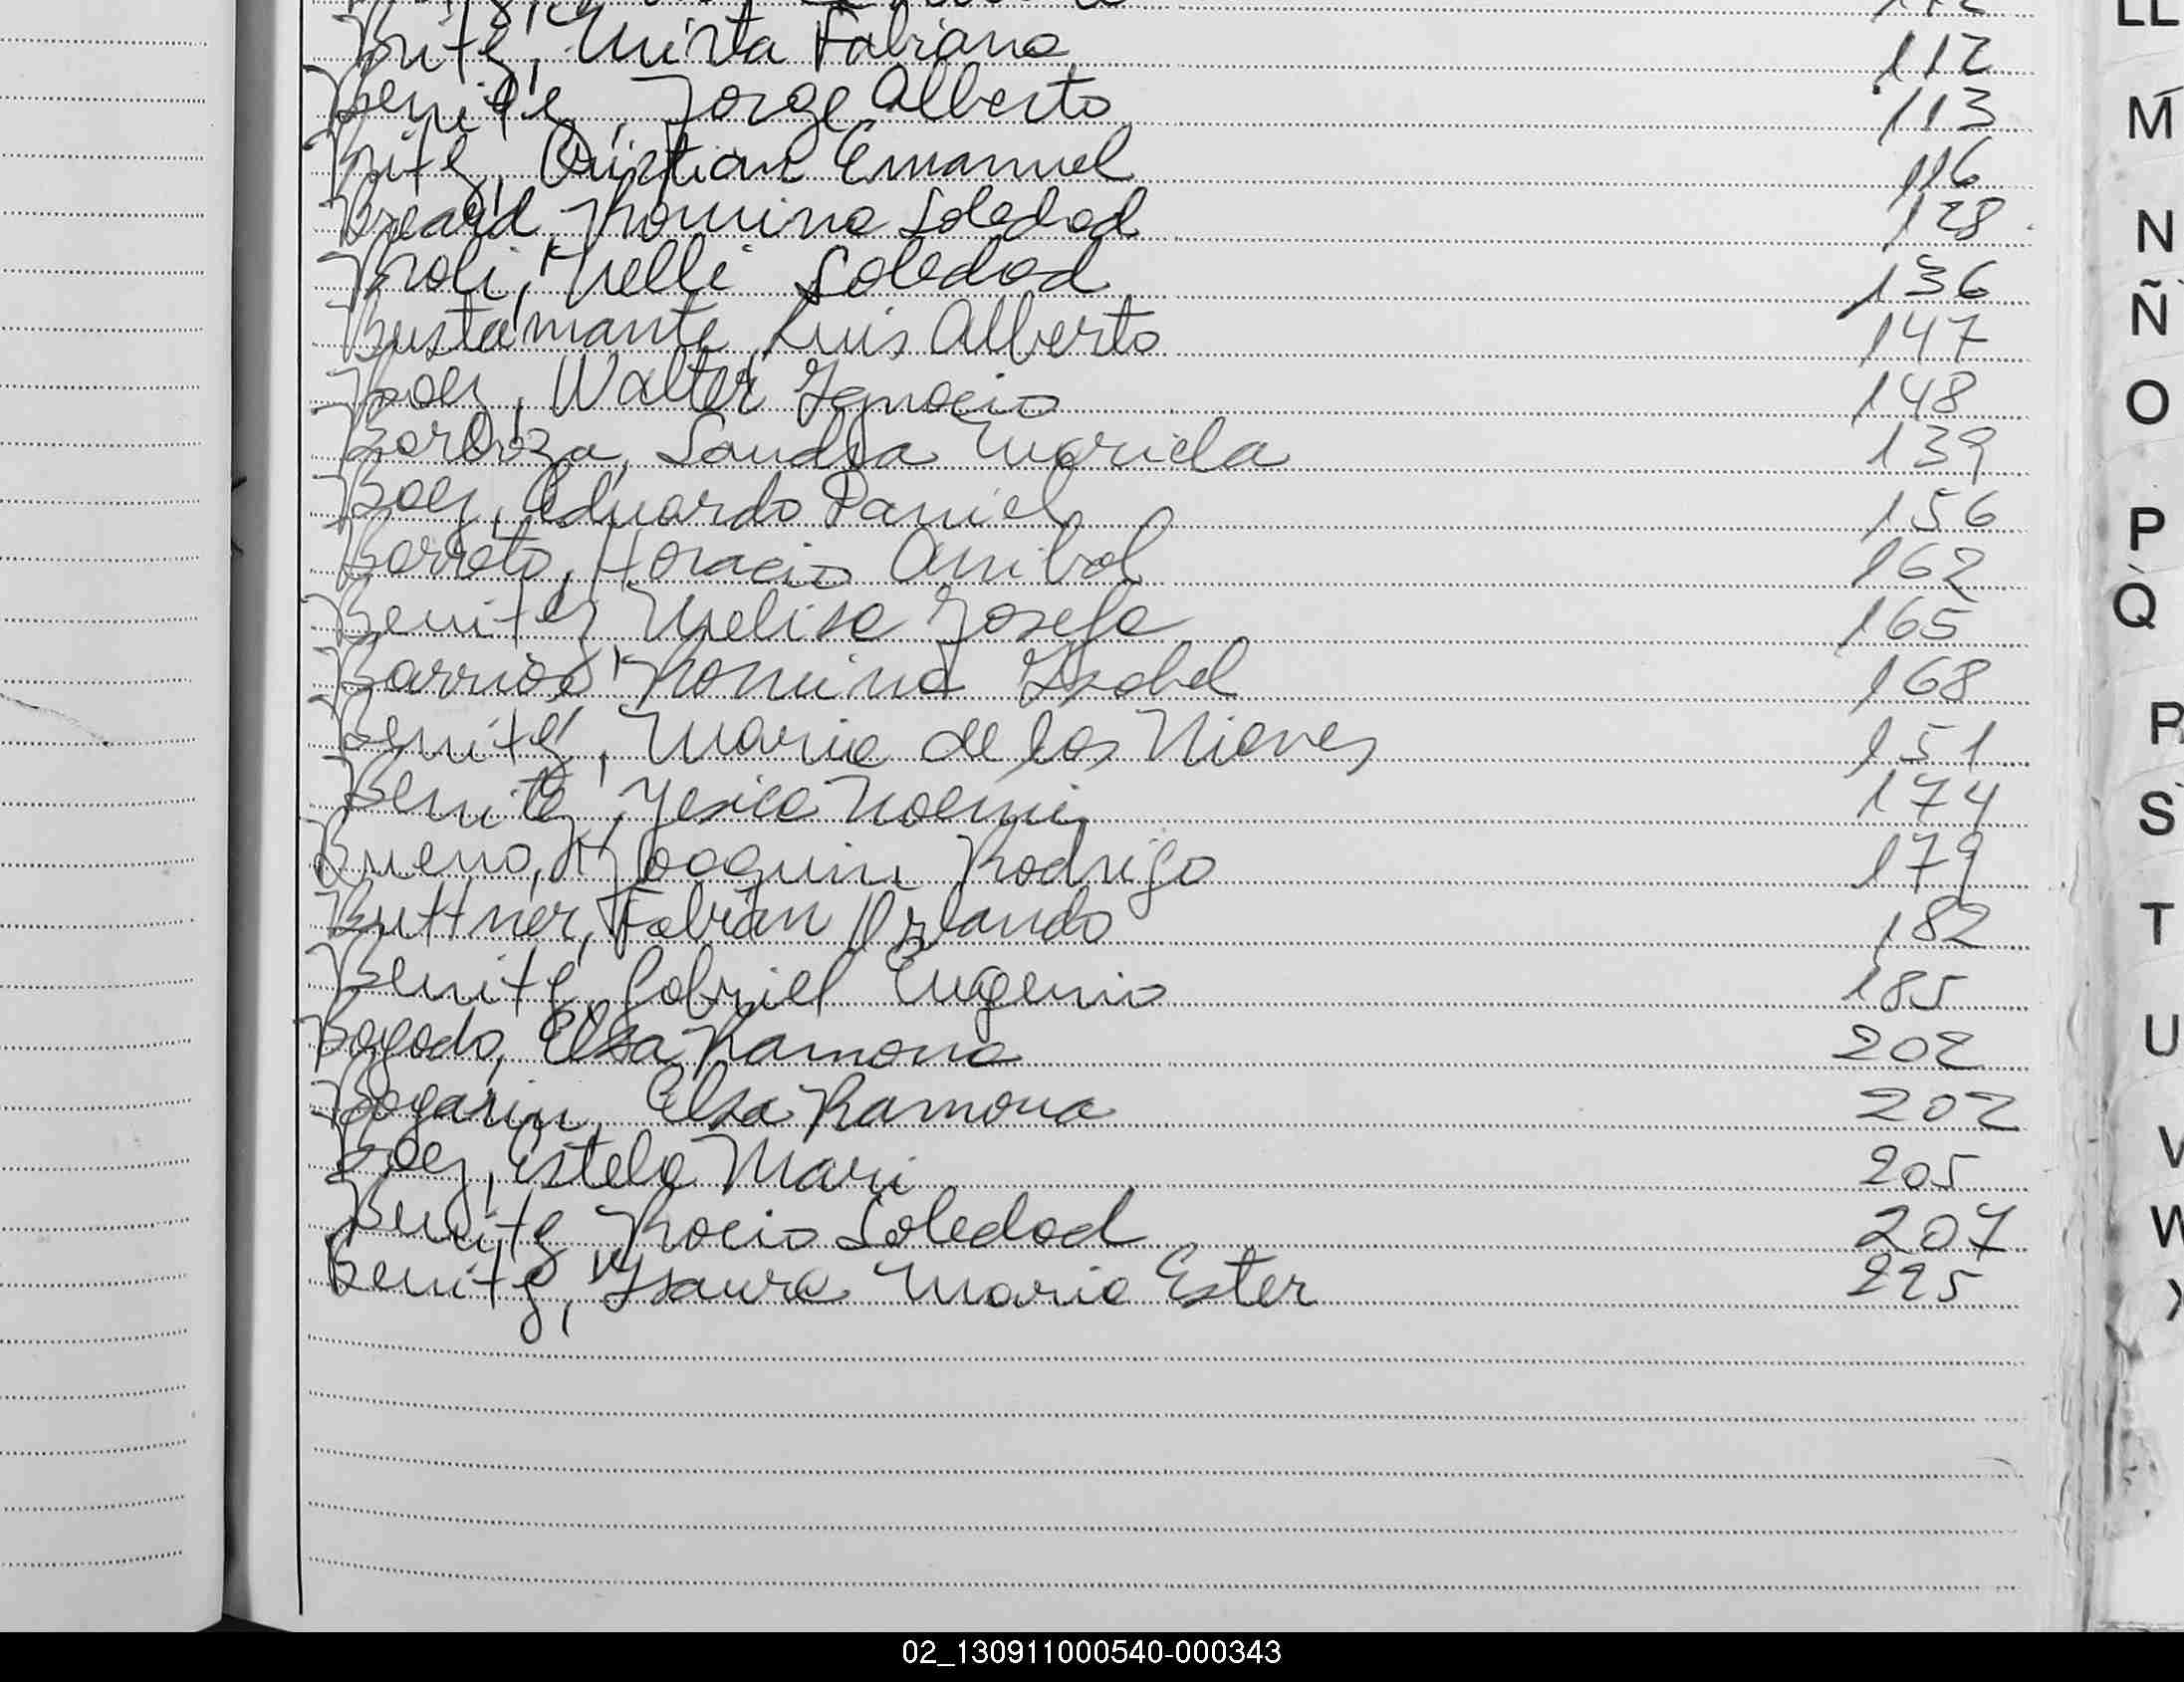 112
Britez, Mirta Fabiana 112
Benitez, Jorge Alberto 113
Britez, Cristian Emanuel 116
Breard, Romina Soledad 128
Broli, Nelli Soledad 136
Bustamante, Luis Alberto 147
Baez, Walter Ignacio 148
Barboza, Sandra Mariela 139
Baez, Eduardo Daniel 156
Barreto, Horacio Anibal 162
Benitez, Melisa Josefa 165
Barrios, Romina Isabel 168
Benitez, Maria de las Nieves 151
Benitez, Yesica Noemi 174
Bueno, Joaquin Rodrigo 179
Buttner, Fabian Orlando 182
Benitez, Gabriel Eugenio 185
Bogado, Elsa Ramona 202
Bogarin, Elsa Ramona 202
Baez, Estela Mari 205
Benitez, Rocio Soledad 207
Benitez, Isaura Maria Ester 225
LL
M
N
Ñ
O
P
Q
R
S
T
U
V
W
X
02_130911000540-000343